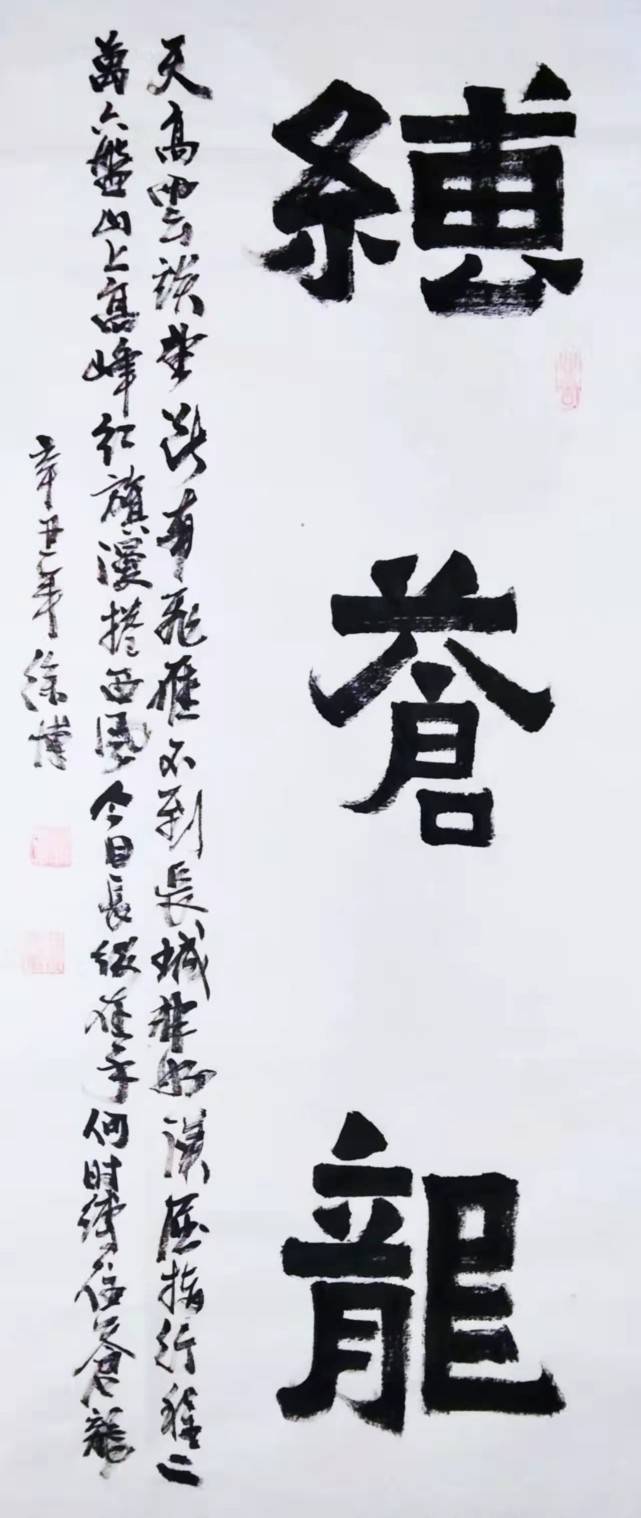 縛蒼龍
天高雲淡望斷南飛雁不到長城非好漢屈指行程二
萬六盤山上高峰紅旗漫捲西風今日長纓在手何時縛住蒼龍
辛丑年徐